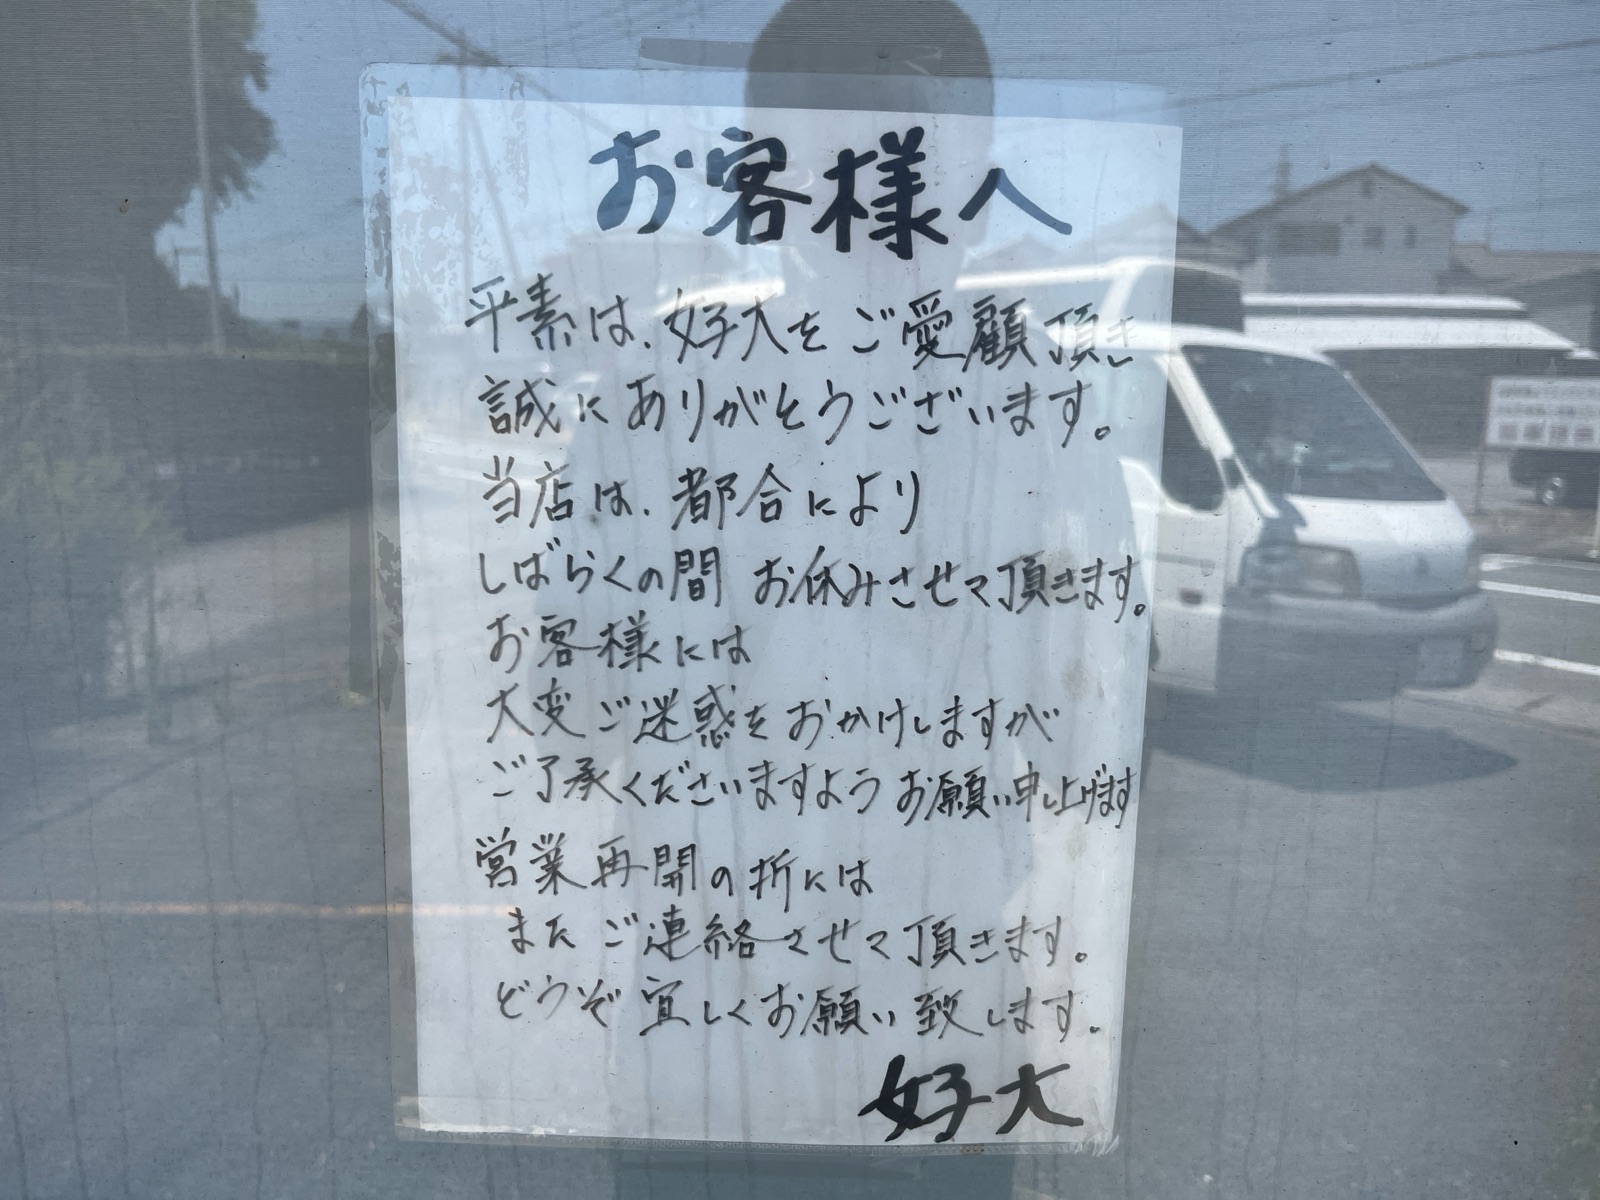 お客様へ
平素は、好大をご愛顧頂き
誠にありがとうございます。
当店は、都合により
しばらくの間 お休みさせて頂きます。
お客様には
大変ご迷惑をおかけしますが
ご了承くださいますようお願い申し上げます
営業再開の折には
またご連絡させて頂きます。
どうぞ宜しくお願い致します。
好大